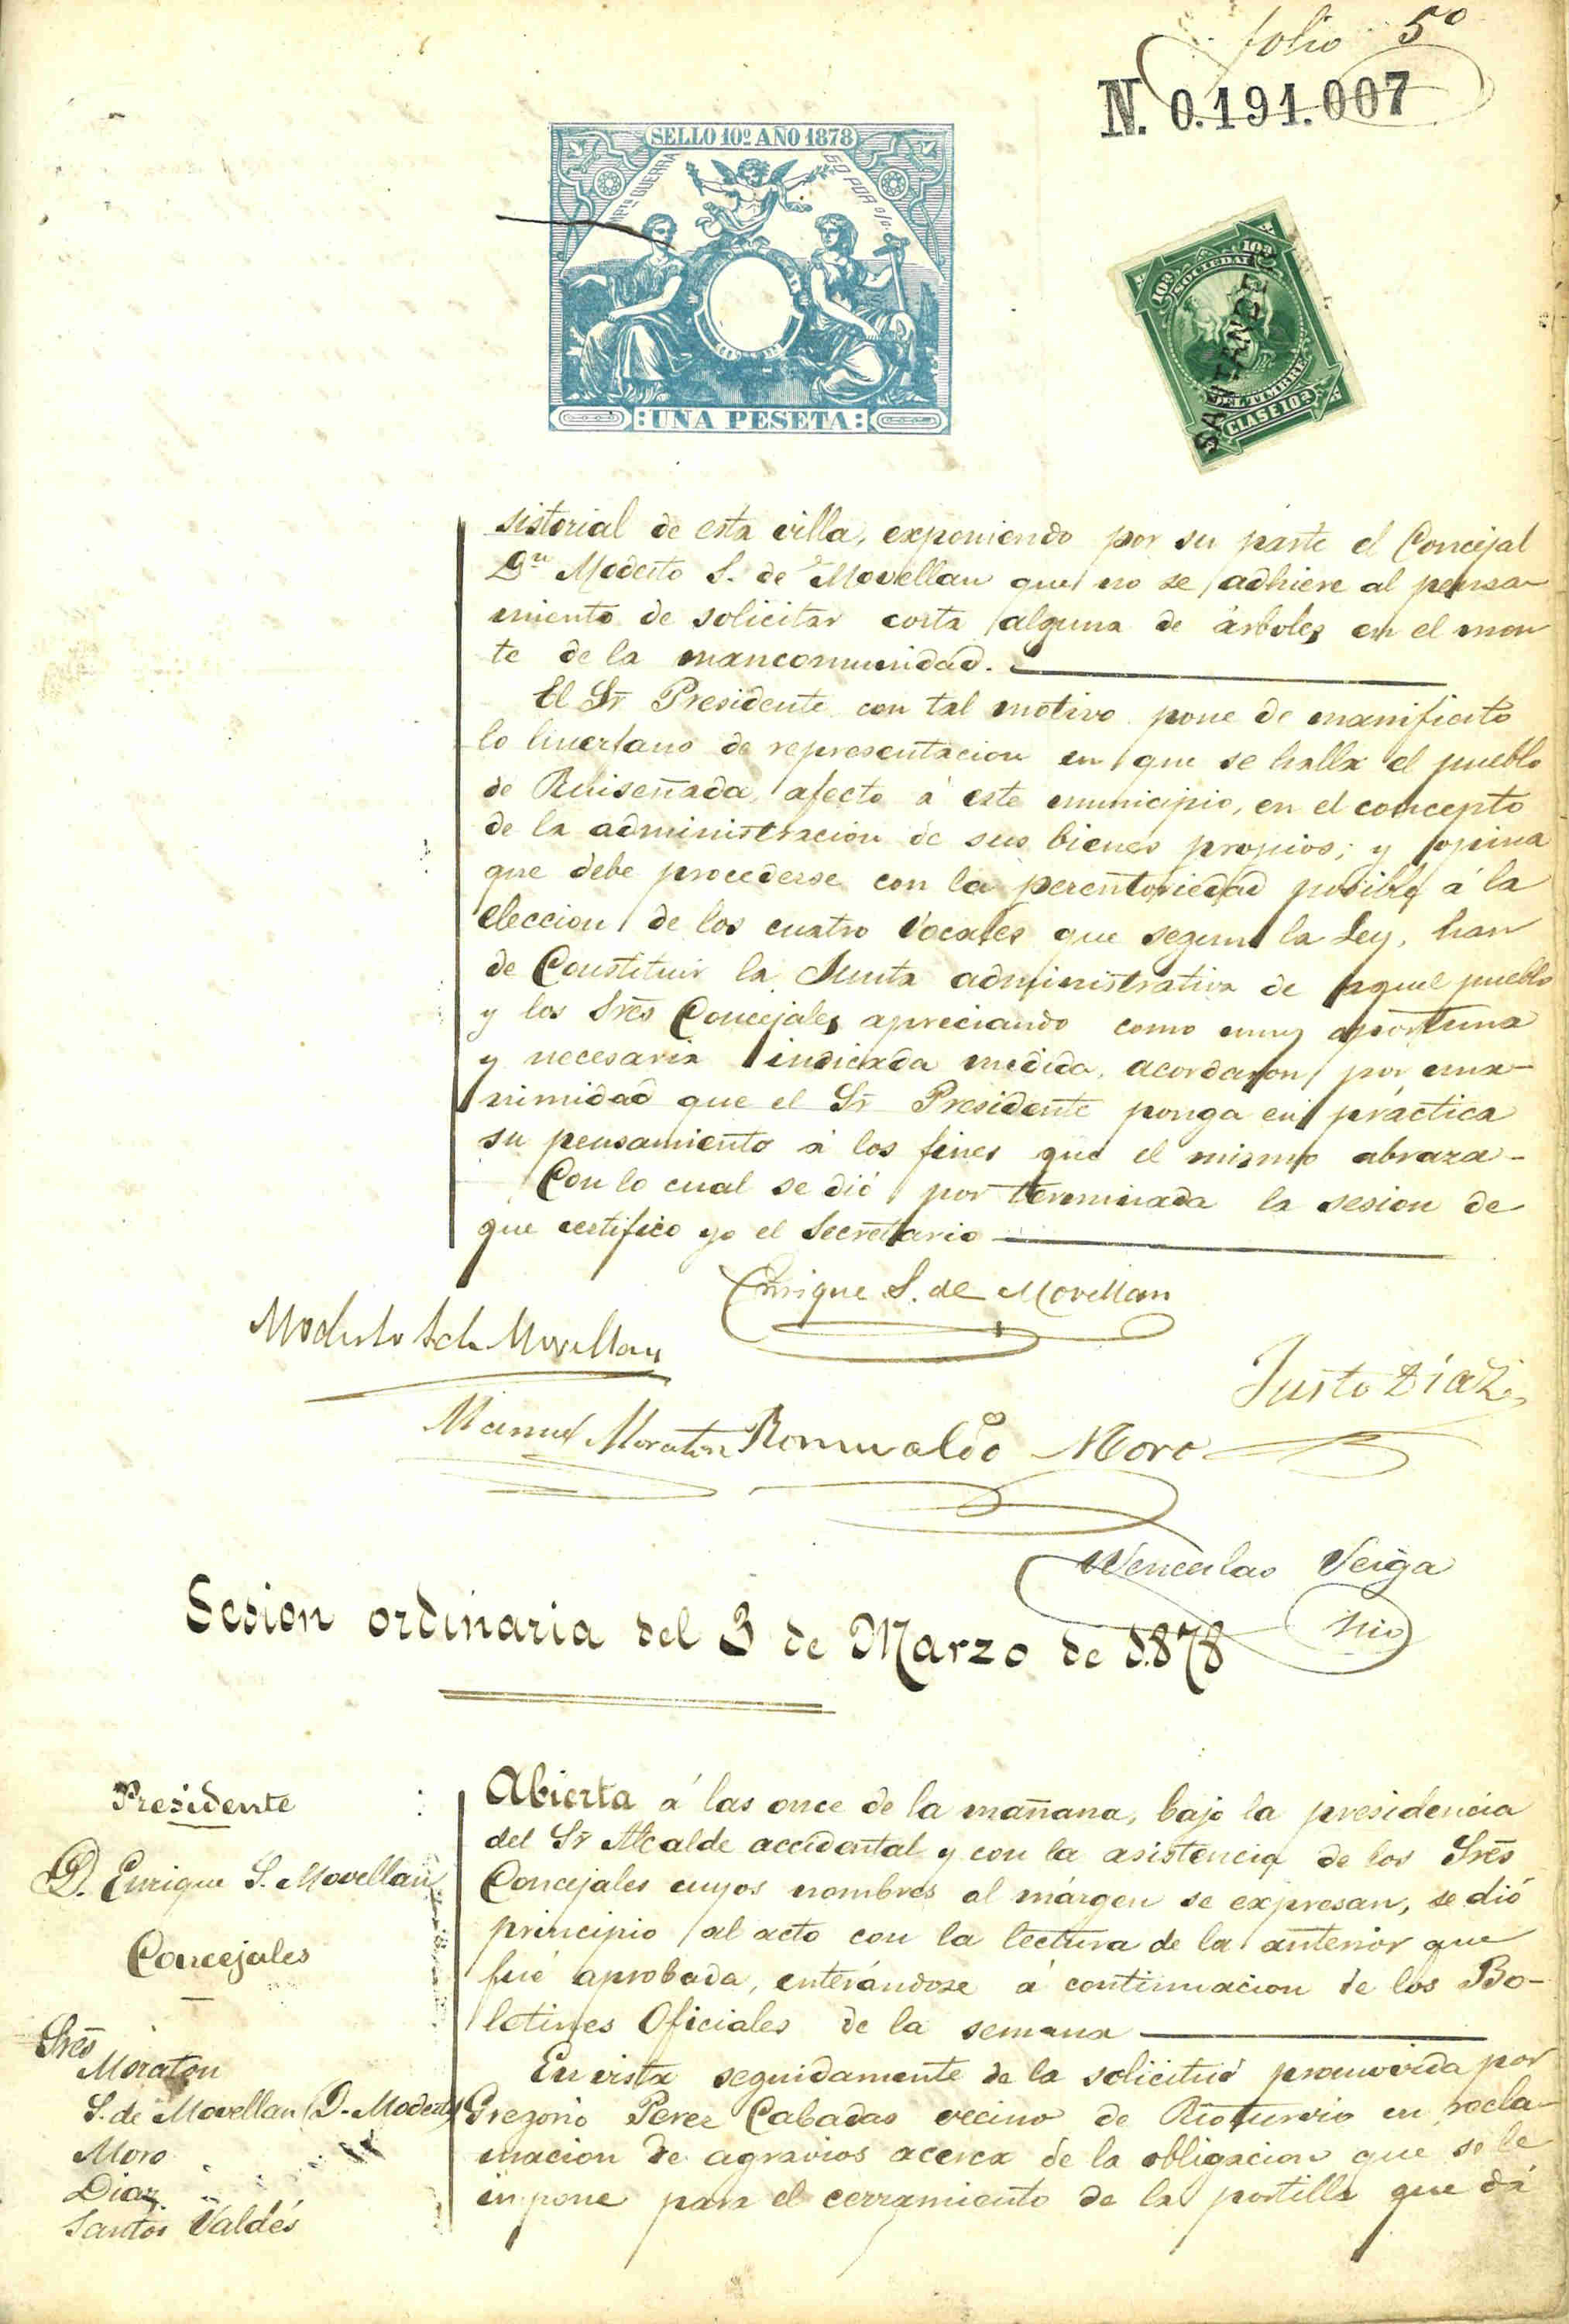 folio 5º
N. 0.191.007
SELLO 10º AÑO 1878
50 POR 0/0
UNA PESETA
102 102
SOCIEDAD
SANTANDER
DEL TIMBRE
CLASE 10a
sistorial de esta villa, exponiendo por su parte el Concejal
Dn Modesto S. de Movellan que no se adhiere al pensa-
miento de solicitar corta alguna de árboles en el mon
te de la mancomunidad.
El Sr Presidente con tal motivo pone de manifiesto
lo huerfano de representacion en que se halla el pueblo
de Ruiseñada, afecto á este municipio, en el concepto
de la administracion de sus bienes propios; y opina
que debe procederse con la perentoriedad posible á la
eleccion de los cuatro Vocales que segun la Ley, han
de Constituir la Junta administrativa de aquel pueblo
y los Sres Concejales apreciando como muy oportuna
y necesaria indicada medida, acordaron por una-
nimidad que el Sr Presidente ponga en práctica
su pensamiento á los fines que el mismo abraza-
Con lo cual se dió por terminada la sesion de
que certifico yo el Secretario
Enrique S. de Movellan
Modesto S de Movellan
Justo Díaz
Manuel Moraton Romualdo Moro
Wenceslao Veiga
Srio
Sesion ordinaria del 3 de Marzo de 1878
Presidente
D. Enrique S. Movellan
Concejales
Sres
Moraton
S. de Movellan (D. Modesto)
Moro
Diaz
Santos Valdés
Abierta á las once de la mañana, bajo la presidencia
del Sr Alcalde accidental y con la asistencia de los Sres
Concejales cuyos nombres al márgen se expresan, se dió
principio al acto con la lectura de la anterior que
fué aprobada, enterándose á continuacion de los Bo-
letines Oficiales de la semana
En vista seguidamente de la solicitud promovida por
Gregorio Perez Cabadas vecino de Rioturvio en recla-
macion de agravios acerca de la obligacion que se le
impone para el cerramiento de la portilla que dá